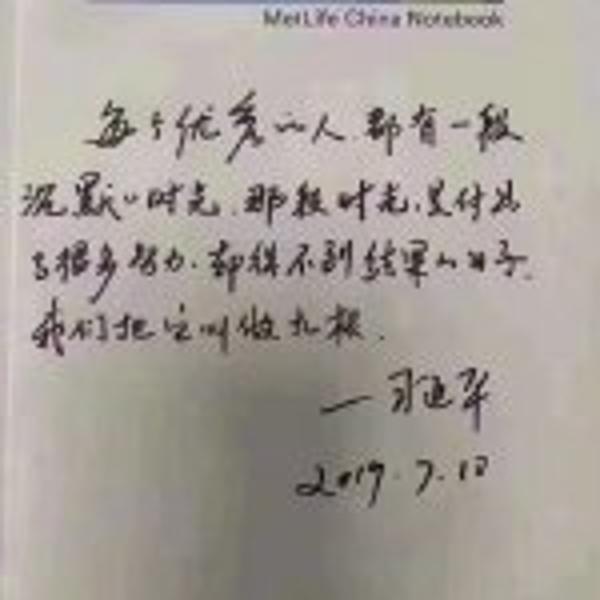 MetLife China Notebook
每个优秀的人，都有一段
沉默的时光，那段时光，是付出
了很多努力，却得不到结果的日子，
我们把它叫做扎根。
2019.7.10